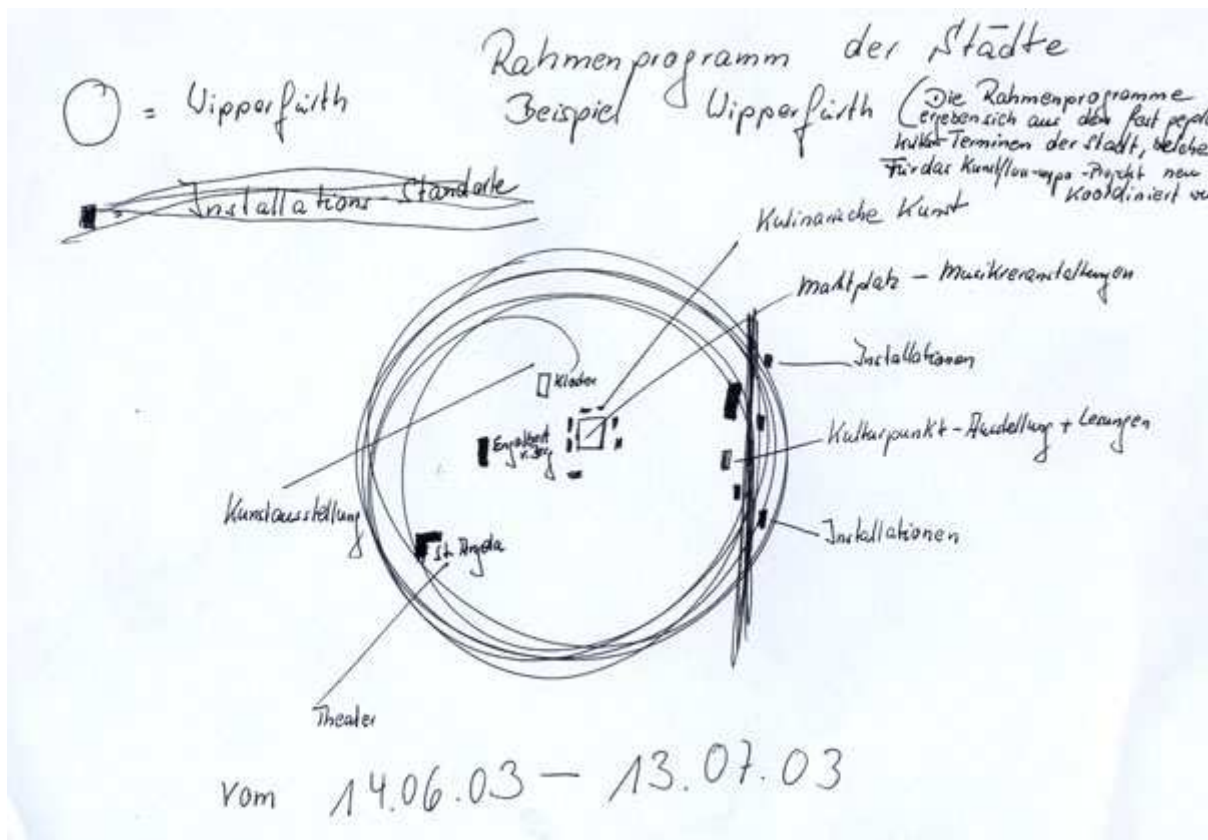 Rahmenprogramm der Städte
Beispiel Wipperfürth
(Die Rahmenprogramme
ergeben sich aus den fest
Terminen der Stadt, welche
Für das -Projekt neu
Koordiniert
= Wipperfürth
Installations-Standorte
Kulinarische Kunst
Marktplatz - Musikveranstaltungen
Installationen
Kulturpunkt-Ausstellung + Lesungen
Installationen
Kloster
Engelbert
v. Berg
Kunstausstellung
St. Angela
Theater
vom 14.06.03 - 13.07.03